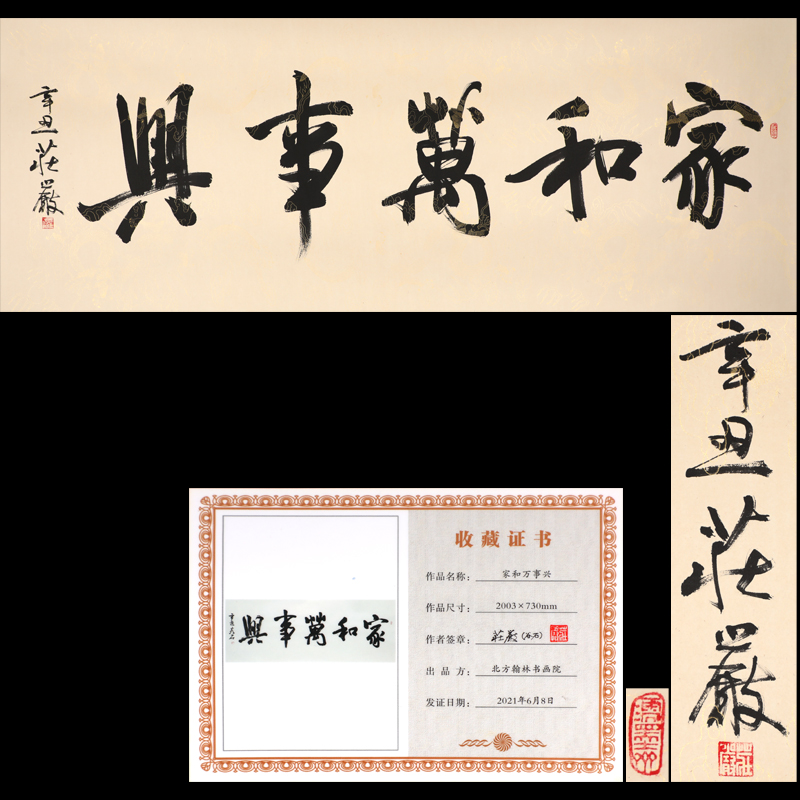 家和萬事興
辛丑
莊嚴
辛丑
莊嚴
收藏证书
作品名称：家和万事兴
家和萬事興
作品尺寸：2003×730mm
作者签章：莊嚴（石石）
出品方：北方翰林书画院
发证日期：2021年6月8日